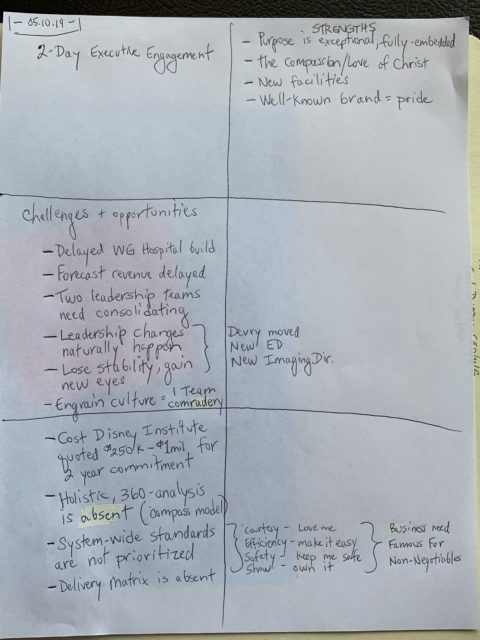 05.10.19
2-Day Executive Engagement
STRENGTHS
- Purpose is exceptional, fully-embedded
- the compassion/Love of Christ
- New facilities
- Well-known brand = pride
Challenges + opportunities
- Delayed WG Hospital build
- Forecast revenue delayed
- Two leadership teams
need consolidating
- Leadership changes
naturally happen
- Lose stability, gain
new eyes
Devry moved
New ED
New Imaging Dir.
- Engrain culture = 1 Team
comradery
- Cost Disney Institute
quoted $250K - $1mil for
2 year commitment
- Holistic, 360-analysis
is absent (compass model)
- System-wide standards
are not prioritized
- Delivery matrix is absent
Courtesy - Love me
Efficiency - make it easy
Safety - keep me safe
Show - own it
Business need
Famous For
Non-Negotiables